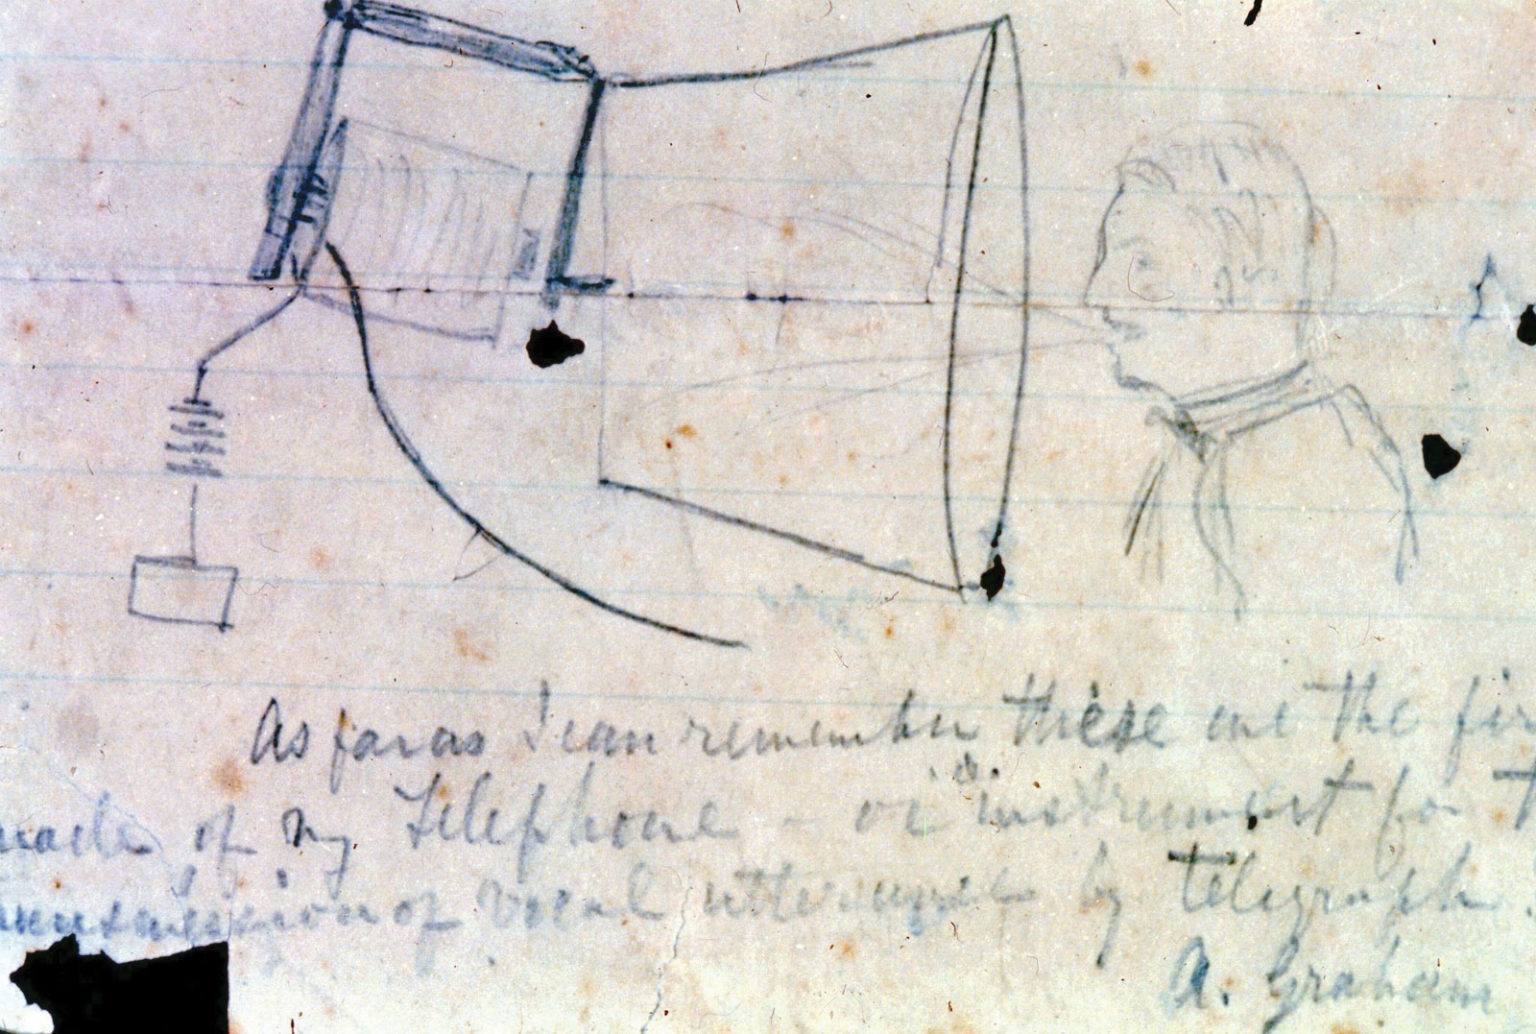 As far as I can remember these are the fir
made of my Telephone - or instrument for t
ansmission of vocal utterance by telegraph.
A. Graham